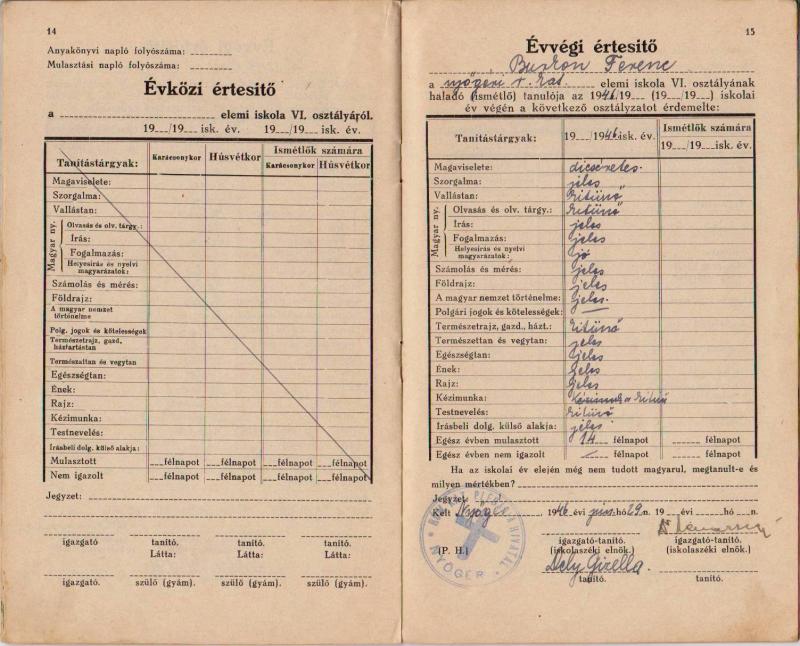 14
Anyakönyvi napló folyószáma:
Mulasztási napló folyószáma:
Évközi értesitő
a elemi iskola VI. osztályáról.
19 /19 isk. év. 19 /19 isk. év.
Tanítástárgyak: Karácsonykor Húsvétkor Ismétlők számára
Karácsonykor Húsvétkor
Magaviselete:
Szorgalma:
Vallástan:
Magyar ny.
Olvasás és olv. tárgy.:
Írás:
Fogalmazás:
Helyesirás és nyelvi
magyarázatok:
Számolás és mérés:
Földrajz:
A magyar nemzet
történelme
Polg. jogok és kötelességek
Természetrajz, gazd,
háztartástan
Természattan és vegytan
Egészségtan:
Ének:
Rajz:
Kézimunka:
Testnevelés:
Irásbeli dolg. külső alakja:
Mulasztott félnapot félnapot félnapot félnapot
Nem igazolt félnapot félnapot félnapot félnapot
Jegyzet:
igazgató tanító. tanító. tanító.
Látta: Látta:
igazgató. szülő (gyám). szülő (gyám). szülő (gyám).
15
Évvégi értesitő
Burkon Ferenc
a nyőgéri r. kat. elemi iskola VI. osztályának
haladó (ismétlő) tanulója az 1946/19 (19 /19 ) iskolai
év végén a következő osztályzatot érdemelte:
Tanitástárgyak: 19 /1946 isk. év. Ismétlők számára
19 /19 isk. év.
Magaviselete: dicséretes.
Szorgalma: jeles
Vallástan: kitünő
Magyar ny.
Olvasás és olv. tárgy.: kitünő
Írás: jeles
Fogalmazás: jeles
Helyesírás és nyelvi
magyarázatok: jó
Számolás és mérés: jeles
Földrajz: jeles
A magyar nemzet történelme: jeles.
Polgári jogok és kötelességek: —
Természetrajz, gazd., házt.: kitünő
Természettan és vegytan: jeles
Egészségtan: jeles
Ének: jeles
Rajz: jeles
Kézimunka: Kézimunka kitünő
Testnevelés: kitünő
Irásbeli dolg. külső alakja: jeles
Egész évben mulasztott 14 félnapot félnapot
Egész évben nem igazolt — félnapot félnapot
Ha az iskolai év elején még nem tudott magyarul, megtanult-e és
milyen mértékben?
Jegyzet:
Kelt Nyőgér, 1946 évi jún. hó 29. n. 19 évi hó n.
igazgató-tanító igazgató-tanító.
(P. H.) (iskolaszéki elnök.) (iskolaszéki elnök.)
NYŐGÉR
Dely Gizella.
tanító. tanító.